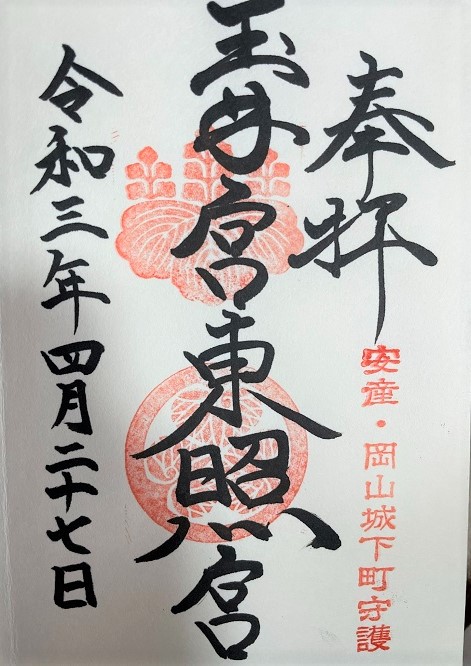 奉拝
安産・岡山城下町守護
玉井宮東照宮
令和三年四月二十七日